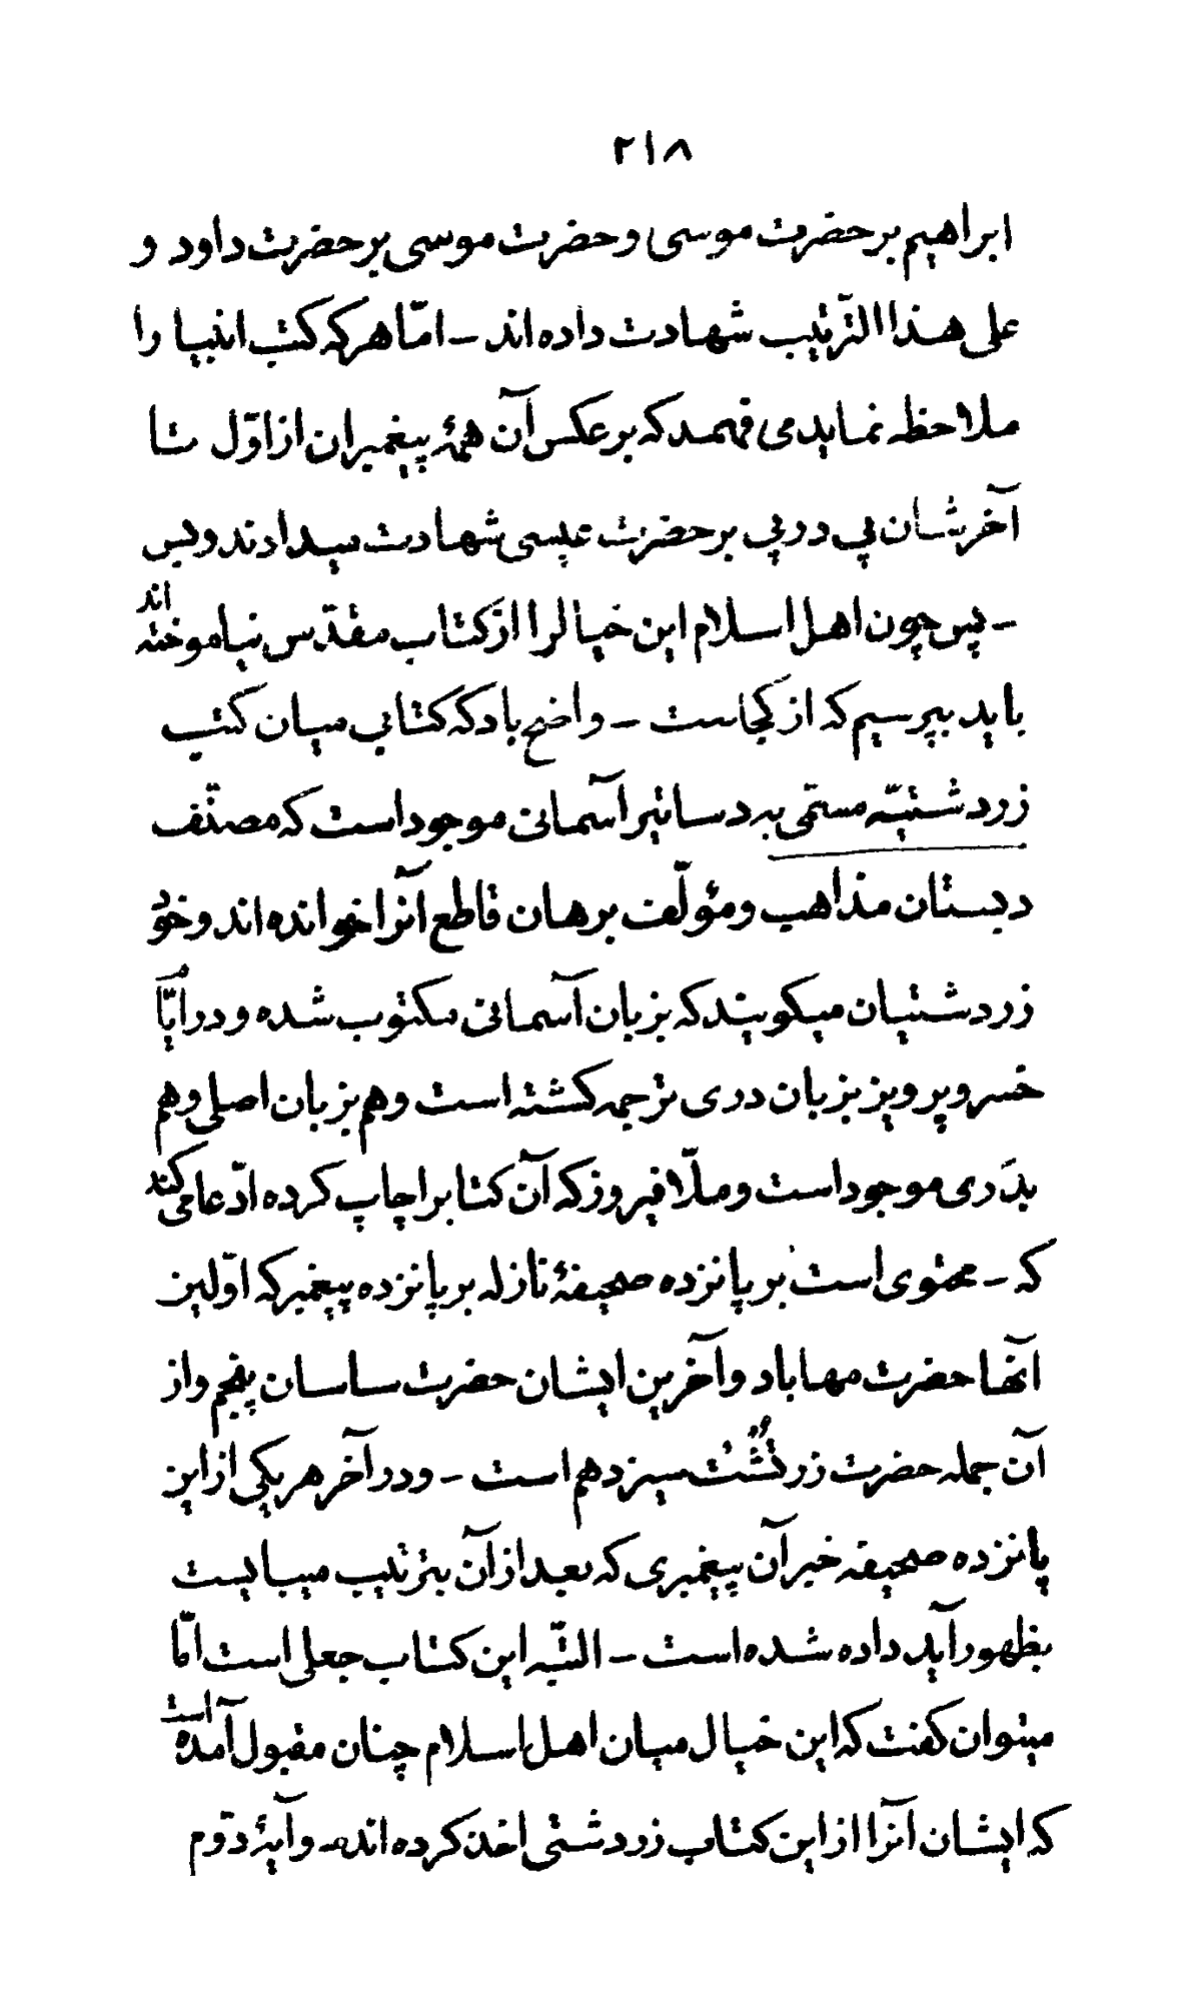 ۲۱۸
ابراهیم بر حضرت موسی و حضرت موسی بر حضرت داود و
علی هذا الترتیب شهادت داده اند – امّا هر که کتب انبیا را
ملاحظه نماید می فهمد که بر عکس آن همهٔ پیغمبران از اوّل تا
آخرشان پی در پی بر حضرت عیسی شهادت میدادند و بس
– پس چون اهل اسلام این خیالرا از کتاب مقدّس نیاموخته اند
باید بپرسیم که از کجاست – واضح باد که کتابی میان کتب
زردشتیّه مسمّی به دساتیر آسمانی موجود است که مصنّف
دبستان مذاهب و مؤلّف برهان قاطع آنرا خوانده اند و خود
زردشتیان میکویند که بزبان آسمانی مکتوب شده و در ایّام
خسرو پرویز بزبان دری ترجمه کشته است و هم بزبان اصلی و هم
بدَری موجود است و ملّا فیروز که آن کتابرا چاپ کرده ادّعا می کند
که – محتوی است بر پانزده صحیفهٔ نازله بر پانزده پیغمبر که اوّلین
آنها حضرت مهاباد و آخرین ایشان حضرت ساسان پنجم و از
آن جمله حضرت زرتُشْت سیزدهم است – و در آخر هر یکی از این
پانزده صحیفه خبر آن پیغمبری که بعد از آن بترتیب میبایست
بظهور آید داده شده است – البتّه این کتاب جعلی است امّا
میتوان کفت که این خیال میان اهل اسلام چنان مقبول آمده است
که ایشان آنرا از این کتاب زردشتی اخذ کرده اند – و آیهٔ دوّم